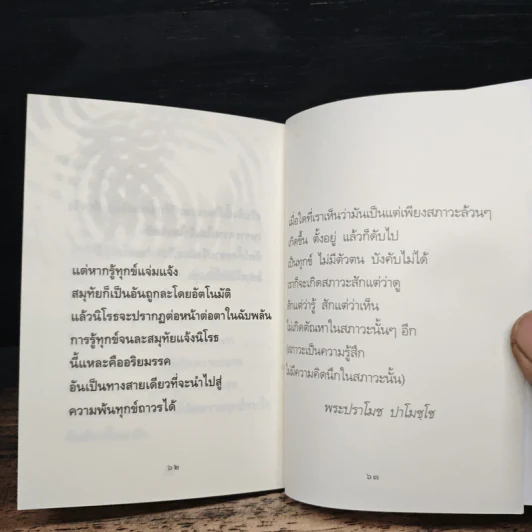 แต่หากรู้ทุกข์แจ่มแจ้ง
สมุทัยก็เป็นอันถูกละโดยอัตโนมัติ
แล้วนิโรธจะปรากฏต่อหน้าต่อตาในฉับพลัน
การรู้ทุกข์จนละสมุทัยแจ้งนิโรธ
นี้แหละคืออริยมรรค
อันเป็นทางสายเดียวที่จะนำไปสู่
ความพ้นทุกข์ถาวรได้
๖๒
เมื่อใดที่เราเห็นว่ามันเป็นแต่เพียงสภาวะล้วนๆ
เกิดขึ้น ตั้งอยู่ แล้วก็ดับไป
เป็นทุกข์ ไม่มีตัวตน บังคับไม่ได้
เราก็จะเกิดสภาวะสักแต่ว่าดู
สักแต่ว่ารู้ สักแต่ว่าเห็น
ไม่เกิดตัณหาในสภาวะนั้นๆ อีก
สภาวะเป็นความรู้สึก
ไม่มีความคิดนึกในสภาวะนั้น)
พระปราโมช ปาโมชฺโช
๖๓